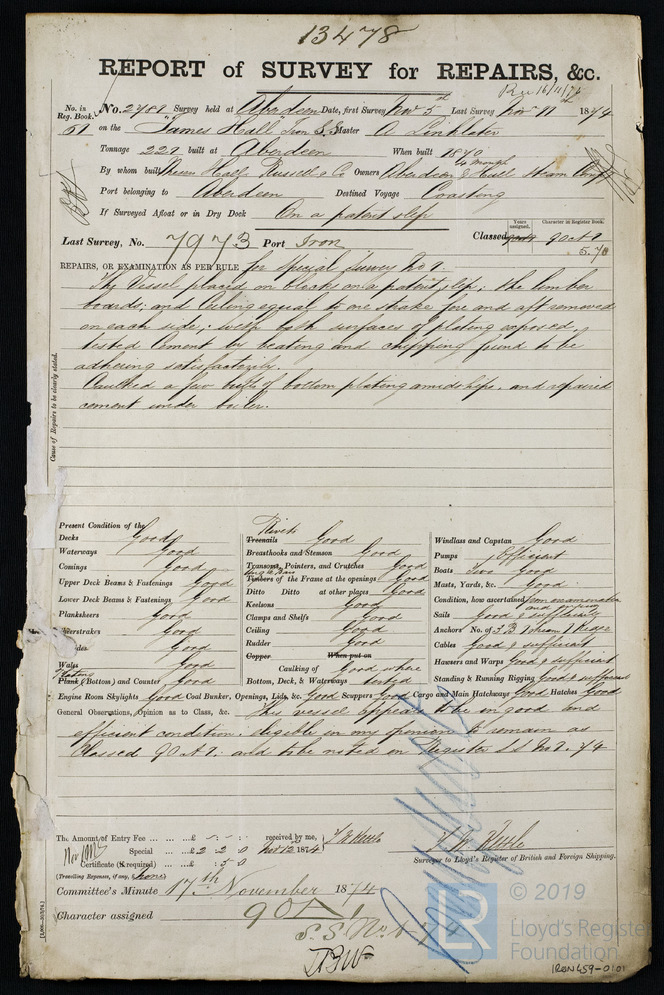 13478
REPORT of SURVEY for REPAIRS, &c.
Rec 16/11/74
No. in Reg. Book. No. 2789 Survey held at Aberdeen Date, first Survey Nov 5th Last Survey Nov 11th 1874
51 on the "James Hall" Iron S.S. Master A Linklater
Tonnage 229 built at Aberdeen When built 1870
By whom built Messrs Hall, Russell & Co Owners Aberdeen & Hull Steam
Port belonging to Aberdeen Destined Voyage Coasting
If Surveyed Afloat or in Dry Dock On a patent slip
Years assigned. Character in Register Book.
Last Survey, No. 7973 Port Iron Classed 90 A 1
5.70
REPAIRS, OR EXAMINATION AS PER RULE for Special Survey No 1.
The Vessel placed on blocks on a patent slip; the limber
boards; and Ceiling equal to one strake fore and aft removed
on each side; with both surfaces of plating exposed,
tested Cement by beating and chipping found to be
adhering satisfactorily.
Caulked a few butts of bottom plating amidships, and repaired
cement under boiler.
Cause of Repairs to be clearly stated.
Present Condition of the
Decks Good
Waterways Good
Comings Good
Upper Deck Beams & Fastenings Good
Lower Deck Beams & Fastenings Good
Planksheers Good
Sheerstrakes Good
Good
Wales Good
Plating
Plank (Bottom) and Counter Good
Rivets
Treenails Good
Breasthooks and Stemson Good
Transoms, Pointers, and Crutches Good
Timbers of the Frame at the openings Good
Ditto Ditto at other places Good
Keelsons Good
Clamps and Shelfs Good
Ceiling Good
Rudder Good
Copper When put on
Caulking of Bottom, Deck, & Waterways Good where tested
Windlass and Capstan Good
Pumps Efficient
Boats Two Good
Masts, Yards, &c. Good
Condition, how ascertained from examination
Sails Good & sufficient
Anchors No. of 3 B 1 Stream 1 Kedge
Cables Good & sufficient
Hawsers and Warps Good & sufficient
Standing & Running Rigging Good & sufficient
Engine Room Skylights Good Coal Bunker, Openings, Lids, &c. Good Scuppers Good Cargo and Main Hatchways Good Hatches Good
General Observations, Opinion as to Class, &c. This vessel appears to be in good and
efficient condition. eligible in my opinion to remain as
Classed 90 A 1. and to be noted in Register SS No 1. 74
The Amount of Entry Fee ... ... ...£ - : - : - received by me,
Special ... ...£ 2 : 2 : 0 Nov 12th 1874
Certificate (if required) ... ...£ : 5 : 0
(Travelling Expenses, if any, £ none)
Surveyor to Lloyd's Register of British and Foreign Shipping.
Committee's Minute 17th November 1874
Character assigned 90 A 1
S.S. No 1-74
© 2019
LR
Lloyd's Register
Foundation
IRON459-0101